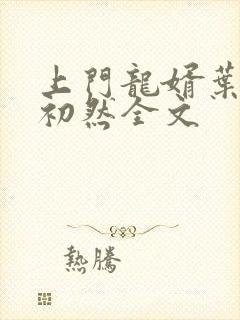 上門龍婿葉
初然全文
熱騰